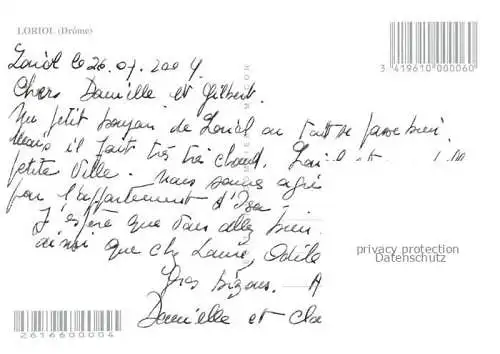 LORIOL (Drôme)
3 419610 000060
Loriol le 26.07.2004.
Chers Danielle et Gilbert.
Un petit bonjour de Loriol où tout se passe bien.
Mais il fait très très chaud. Loriol est
petite ville. Nous sommes
pour l'appartement d'Isa
J'espère que vous allez bien
ainsi que chez Laure, Odile
Gros bizous. A
Danielle et Cla
privacy protection
Datenschutz
2616600004